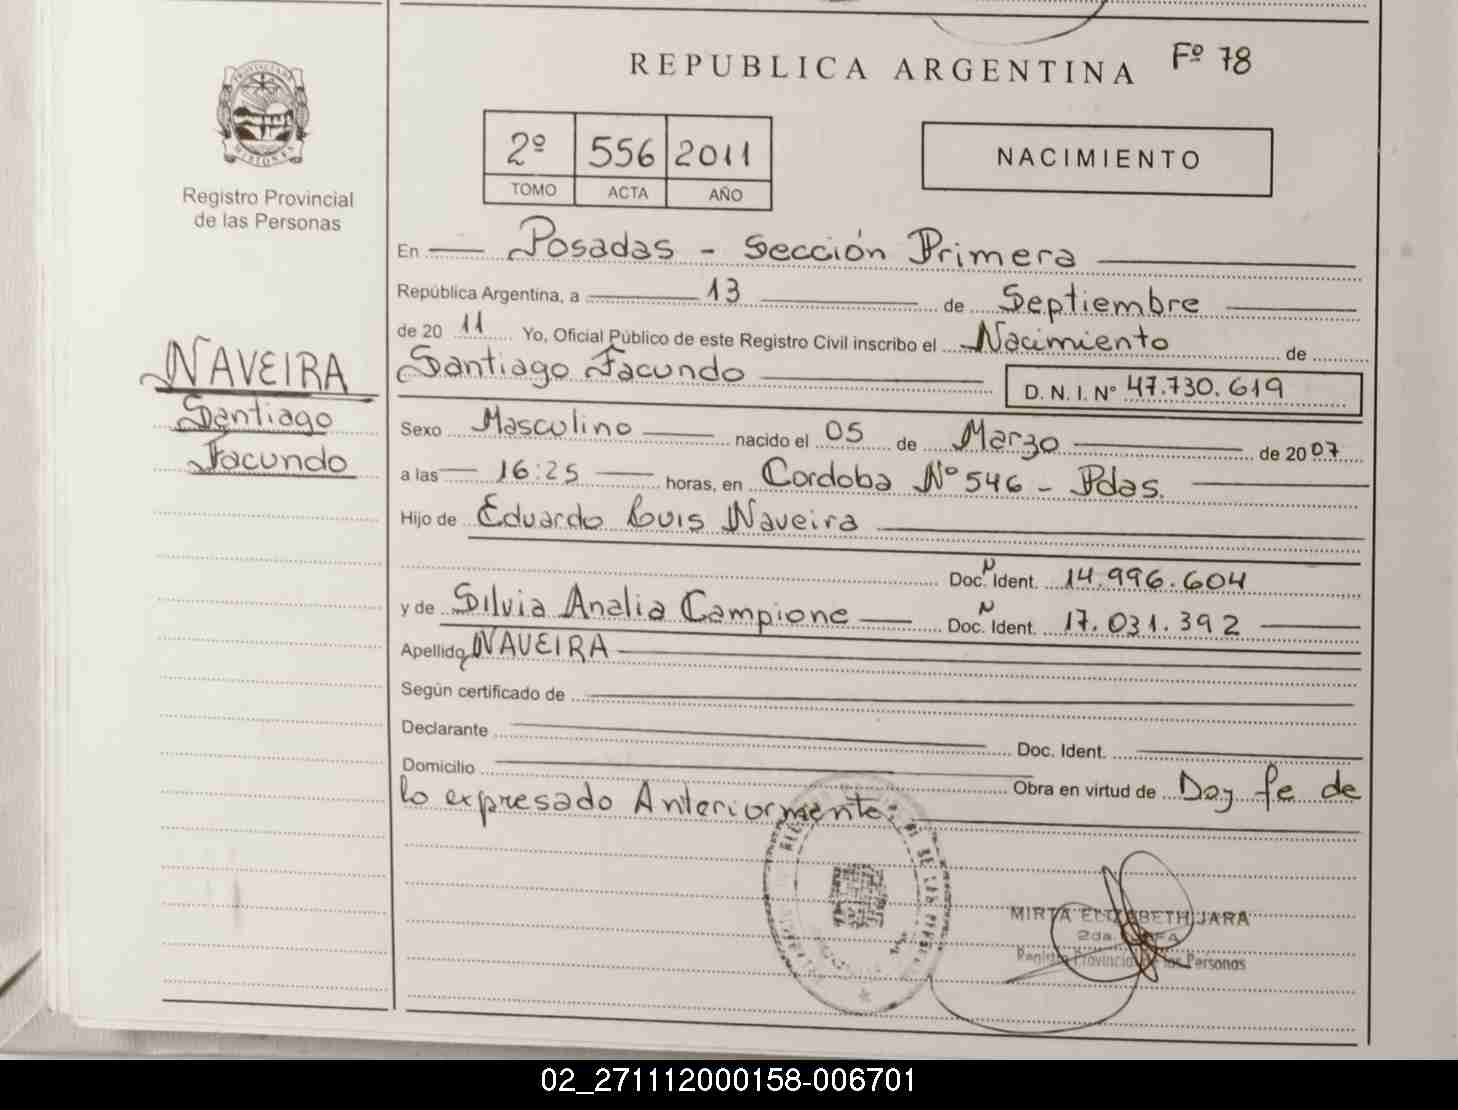 REPUBLICA ARGENTINA Fº 78
2º 556 2011
TOMO ACTA AÑO
NACIMIENTO
PROVINCIA DE MISIONES
Registro Provincial
de las Personas
NAVEIRA
Santiago
Facundo
En Posadas - Sección Primera
República Argentina, a 13 de Septiembre
de 20 11 Yo, Oficial Público de este Registro Civil inscribo el Nacimiento de
Santiago Facundo D. N. I. Nº 47.730.619
Sexo Masculino nacido el 05 de Marzo de 20 07
a las 16:25 horas, en Cordoba Nº 546 - Pdas.
Hijo de Eduardo Luis Naveira
Doc. N Ident. 14.996.604
y de Silvia Analia Campione Doc. N Ident. 17.031.392
Apellido NAVEIRA
Según certificado de
Declarante Doc. Ident.
Domicilio
Obra en virtud de Doy fe de
lo expresado Anteriormente.
MIRTA ELIZABETH JARA
2da. JEFA
Registro Provincial de las Personas
02_271112000158-006701